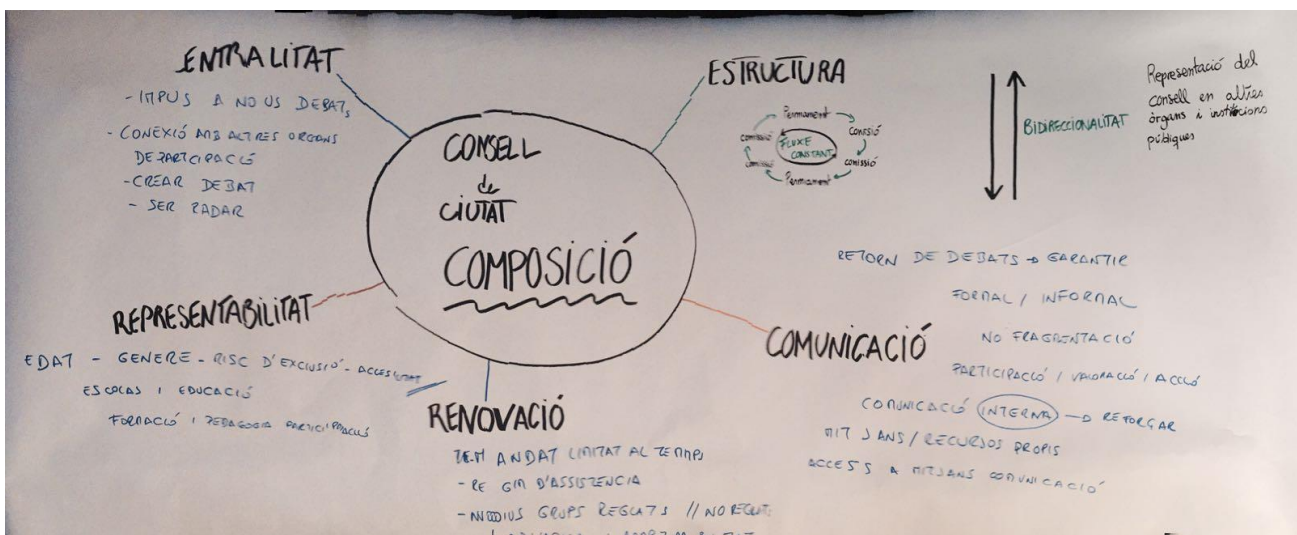 ENTRALITAT
- IMPUS A NOUS DEBATS
- CONEXIÓ AMB ALTRES ORGANS
DE PARTICIPACIÓ
- CREAR DEBAT
- SER RADAR
CONSELL
de
CIUTAT
COMPOSICIÓ
ESTRUCTURA
Permament
Comissió
comissió
Permament
comissió
comissió
FLUXE
CONSTANT
BIDIRECCIONALITAT
Representació del
consell en altres
òrgans i institucions
públiques
REPRESENTABILITAT
EDAT - GENERE - RISC D'EXCLUSIÓ - ACCESIBILITAT
ESCOLAS I EDUCACIÓ
FORMACIÓ I PEDAGOGIA
RENOVACIÓ
LIMITAT AL TEMPS
- RE GIM D'ASSISTENCIA
GRUPS REGLATS // NO
COMUNICACIÓ
RETORN DE DEBATS → GARANTIR
FORMAL / INFORMAL
NO FRAGMENTACIÓ
PARTICIPACIÓ / VALORACIÓ / ACCIÓ
COMUNICACIÓ INTERNA → REFORÇAR
MITJANS / RECURSOS PROPIS
ACCESS A MITJANS COMUNICACIÓ